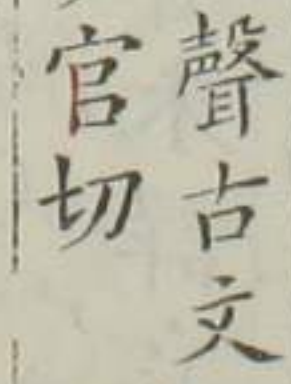 聲古文
官切